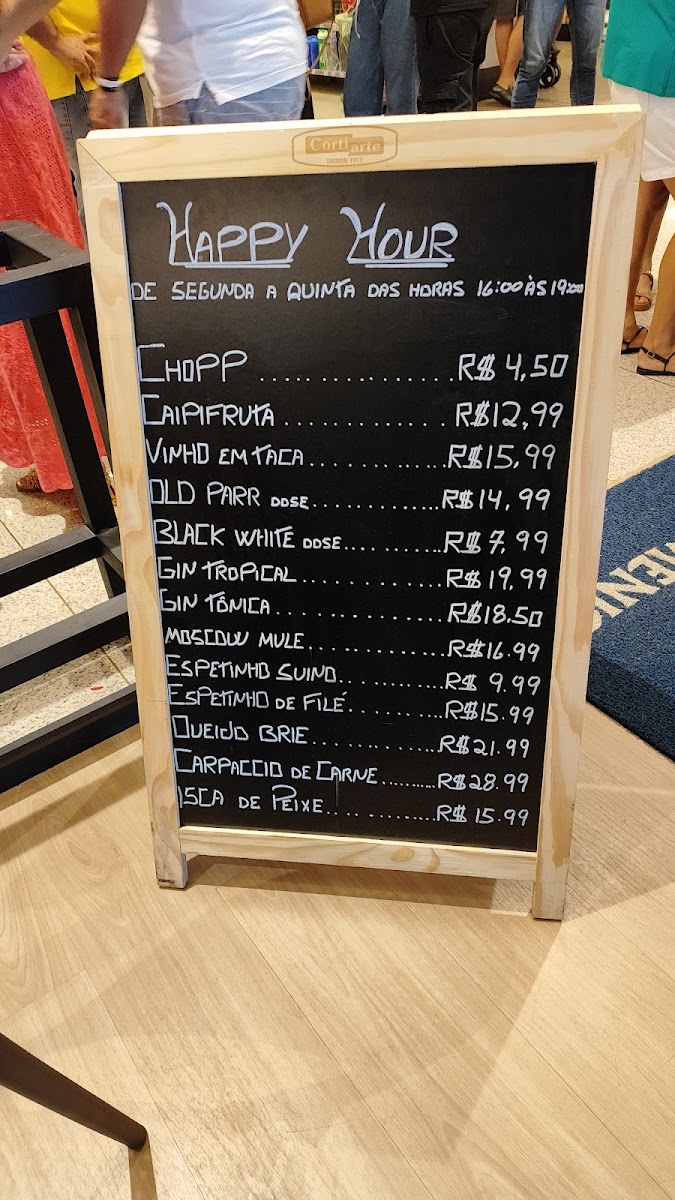 Corti arte
DESDE 1973
HAPPY HOUR
DE SEGUNDA A QUINTA DAS HORAS 16:00 ÀS 19:00
CHOPP ..................... R$ 4,50
CAIPIFRUTA ................ R$12,99
VINHO EM TACA.............. R$15,99
OLD PARR DOSE.............. R$14,99
BLACK WHITE DOSE........... R$7,99
GIN TROPICAL............... R$19,99
GIN TÔNICA................. R$18.50
MOSCOW MULE................ R$16.99
ESPETINHO SUINO............ R$ 9.99
ESPETINHO DE FILÉ.......... R$15.99
QUEIJO BRIE................ R$21.99
CARPACCIO DE CARNE.......... R$28.99
ISCA DE PEIXE.............. R$15.99